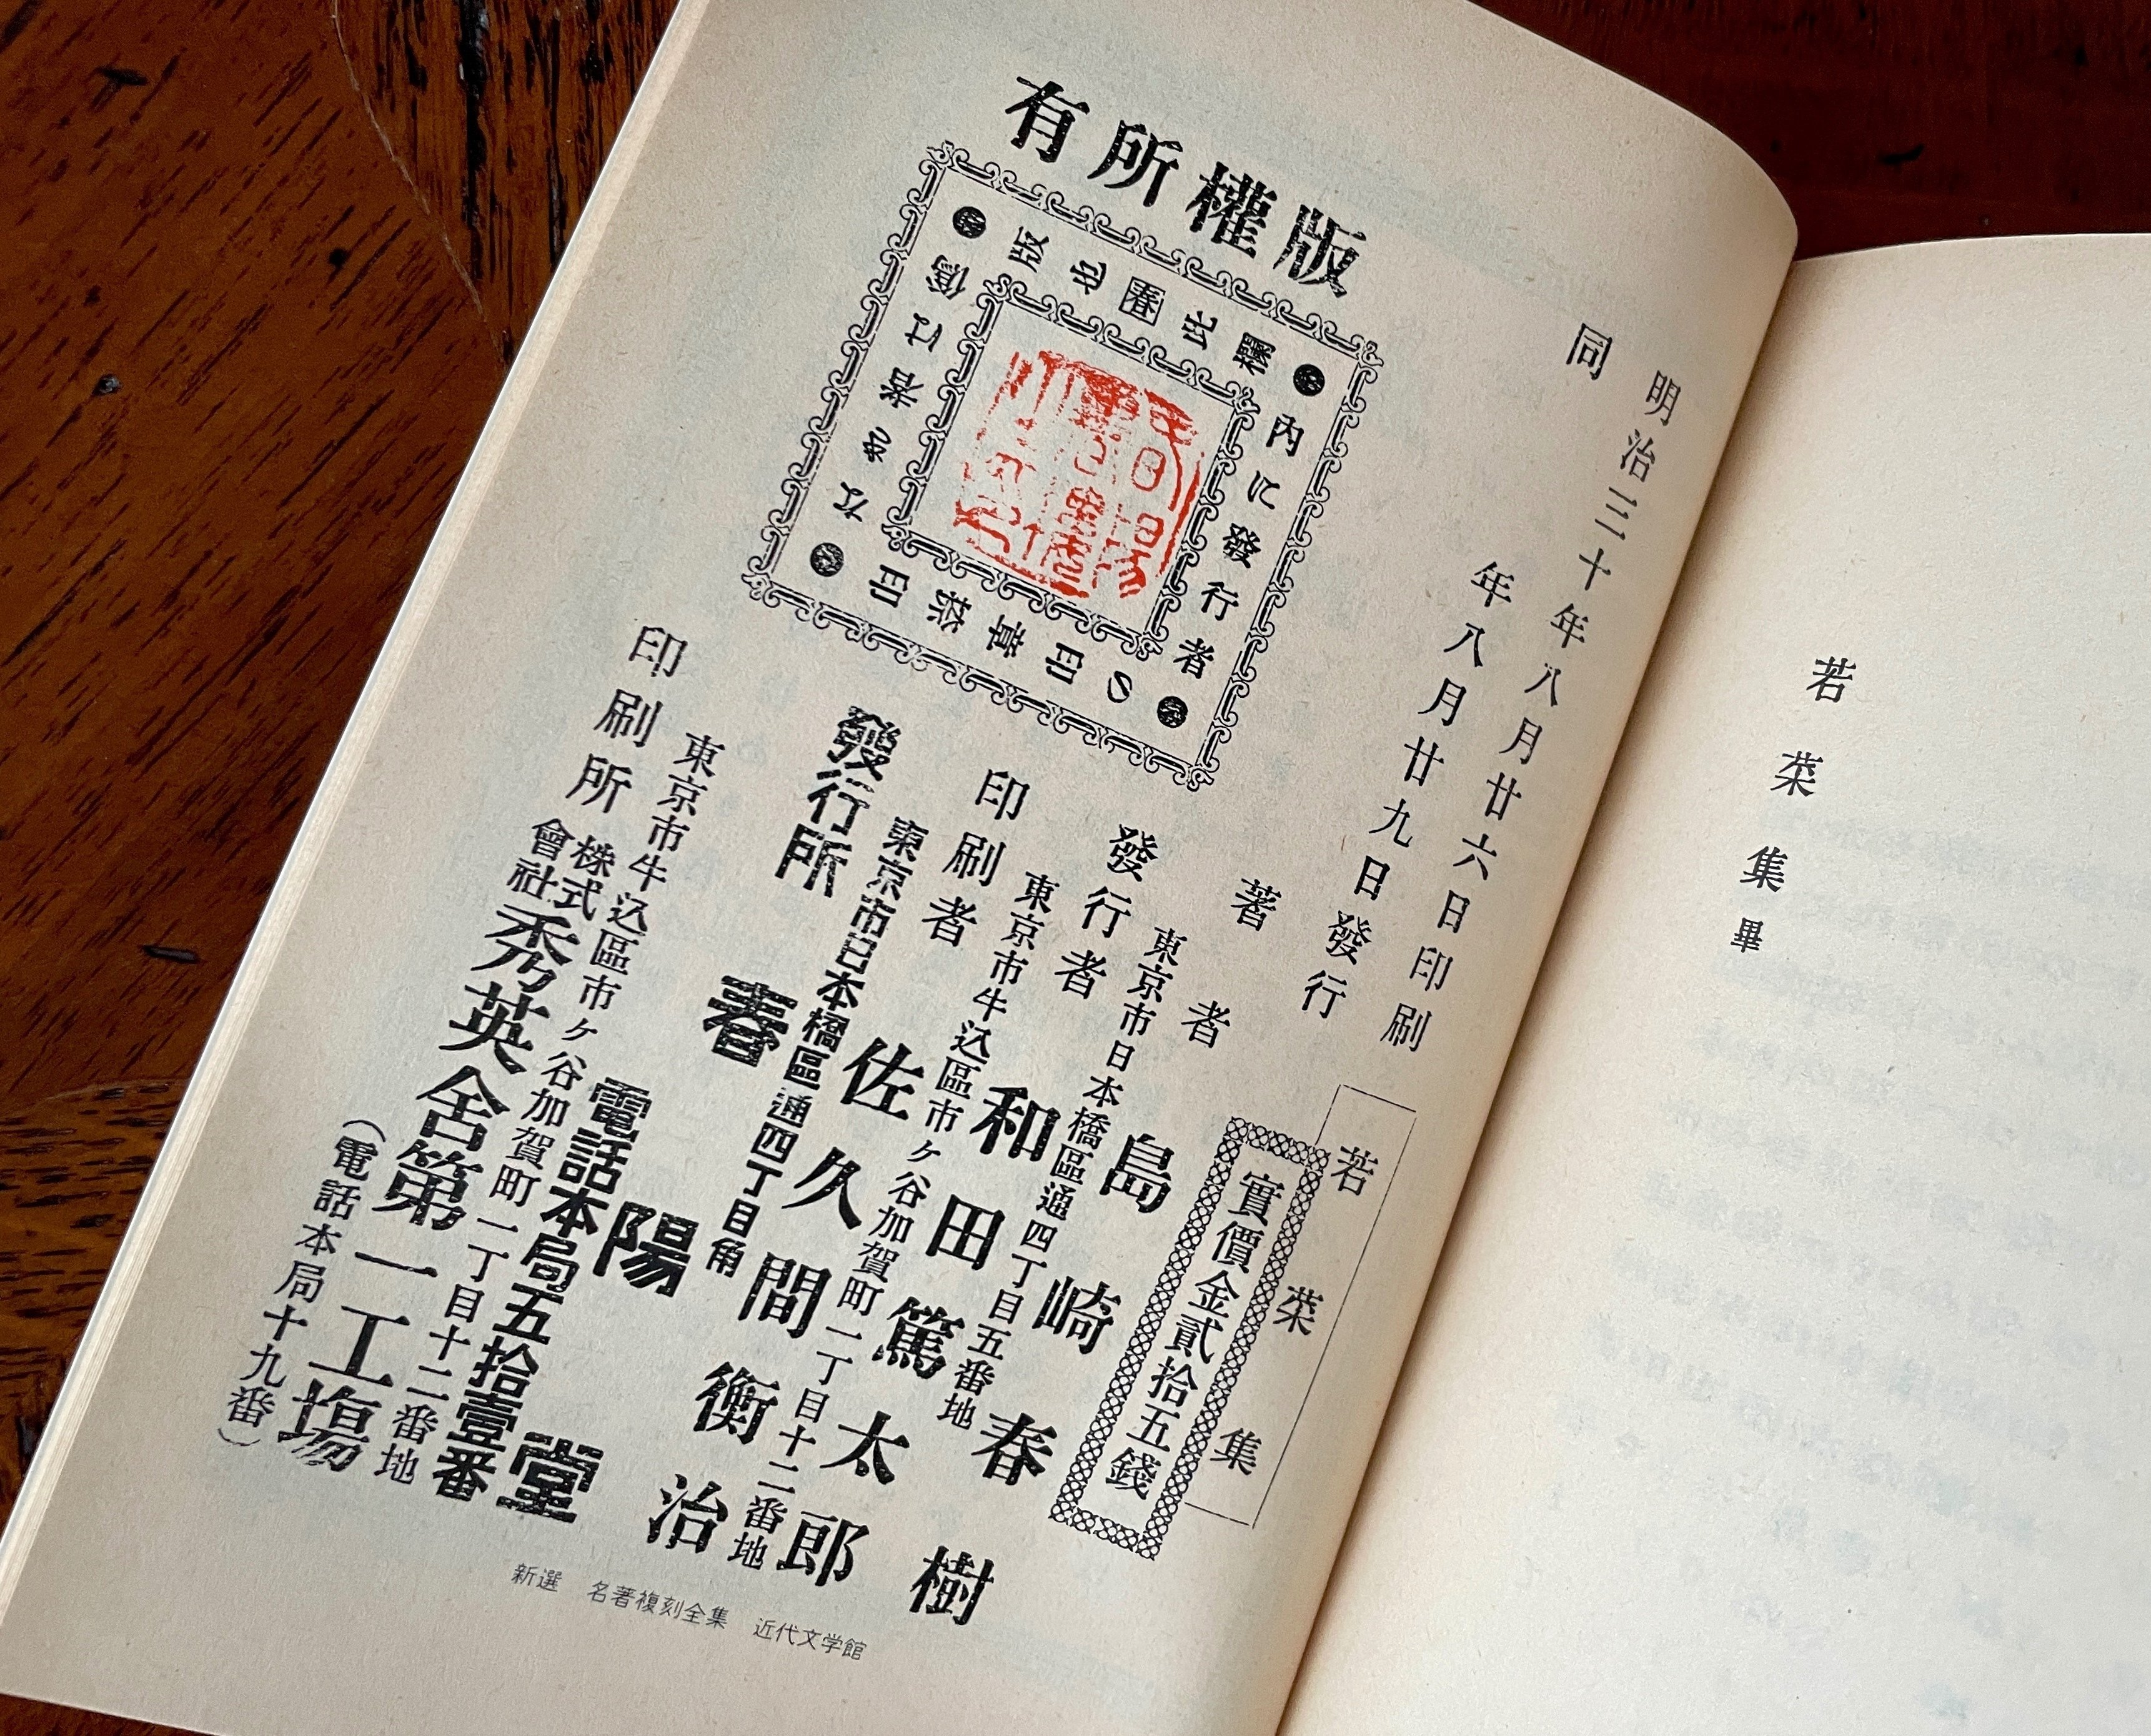 若菜集畢
明治三十年八月廿六日印刷
同年八月廿九日發行
若菜集
實價金貳拾五錢
著者 島崎春樹
東京市日本橋區通四丁目五番地
發行者 和田篤太郎
東京市牛込區市ヶ谷加賀町一丁目十二番地
印刷者 佐久間衡治
東京市日本橋區通四丁目角
發行所 春陽堂
電話本局五拾壹番
東京市牛込區市ヶ谷加賀町一丁目十二番地
印刷所 株式會社秀英舍第一工塲
(電話本局十九番)
版權所有
欄
内に發行者
の印章 印
なき者は偽
版也
春
新選 名著複刻全集 近代文学館